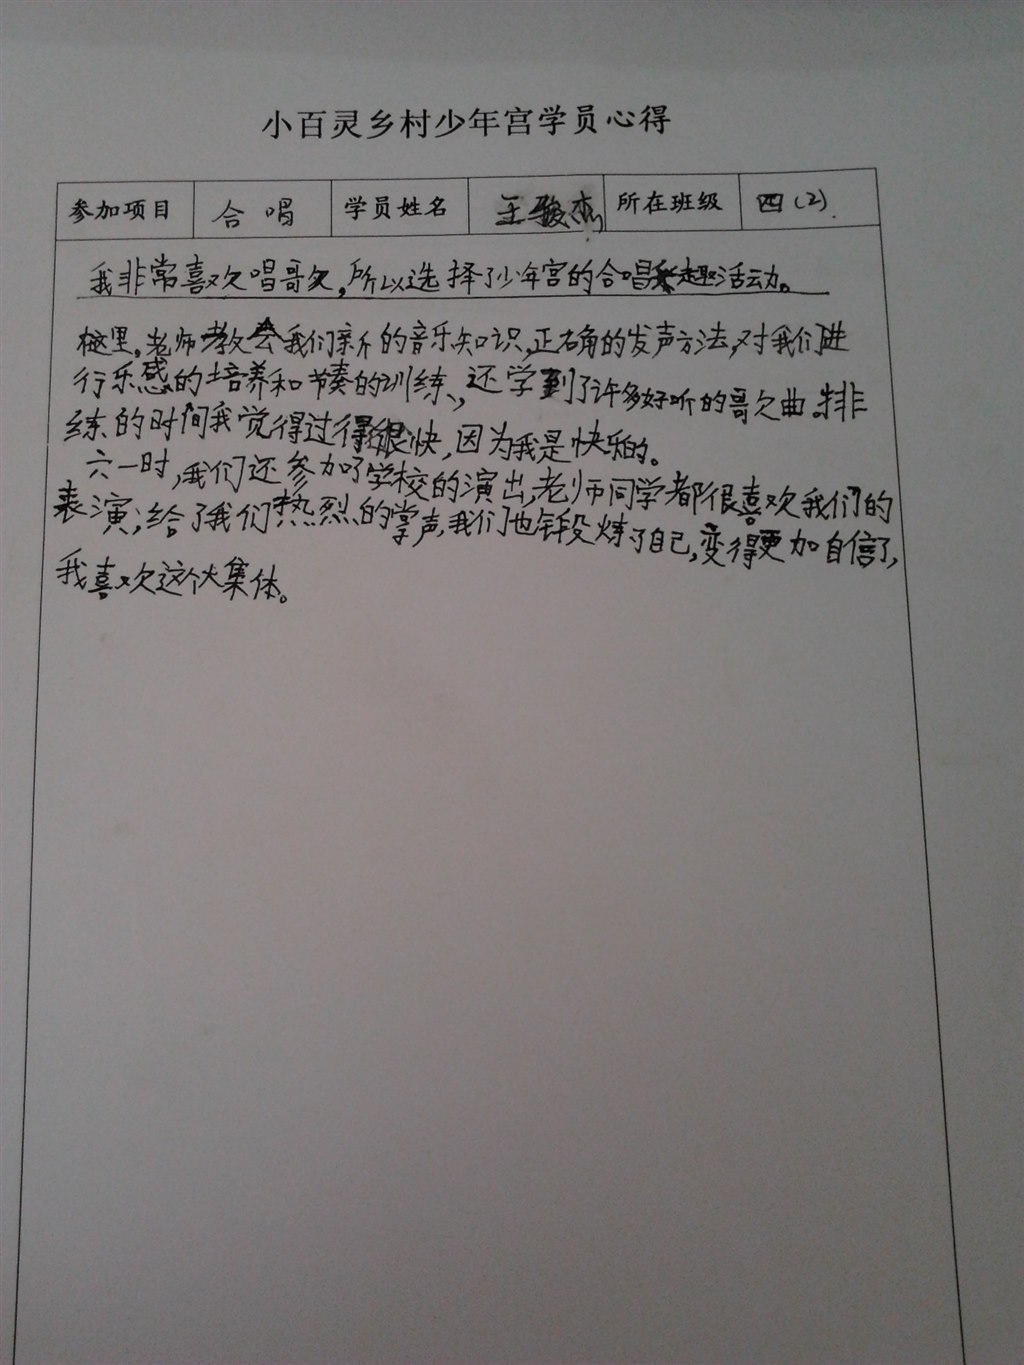 小百灵乡村少年宫学员心得
参加项目 合唱 学员姓名 王骏杰 所在班级 四(2)
我非常喜欢唱歌,所以选择了少年宫的合唱兴趣活动。
这里,老师教会我们新的音乐知识,正确的发声方法,对我们进
行乐感的培养和节奏的训练、,还学到了许多好听的歌曲。排
练的时间我觉得过得很快,因为我是快乐的。
六一时,我们还参加了学校的演出,老师同学都很喜欢我们的
表演;给了我们热烈的掌声,我们也锻炼了自己,变得更加自信了,
我喜欢这个大集体。